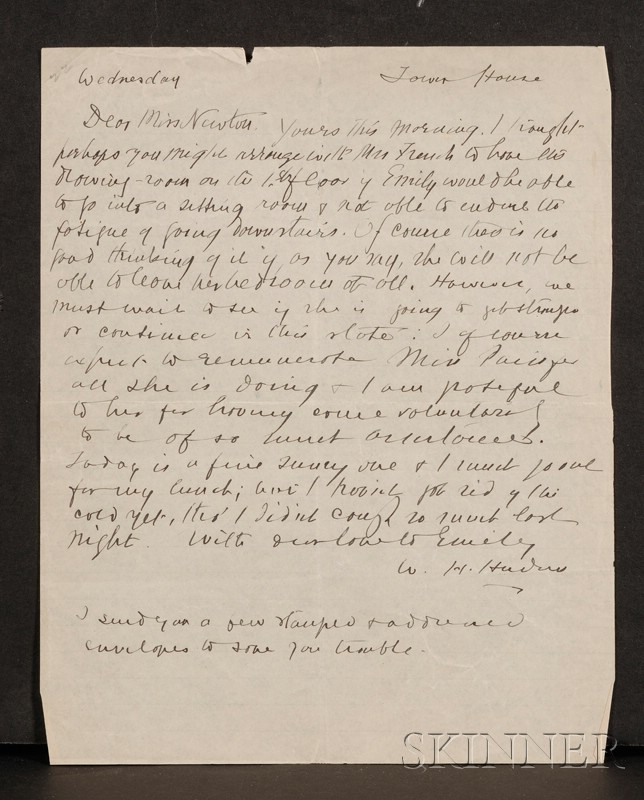 Wednesday Tower House
Dear Mrs Newton. Yours this morning. I thought
perhaps you might arrange with Mrs French to have the
drawing-room on the 1st floor if Emily would be able
to go into a sitting room & not able to endure the
fatigue of going downstairs. Of course there is no
good thinking of it if, as you say, she will not be
able to leave her bedroom at all. However, we
must wait to see if she is going to get stronger
or continue in this state. I of course
expect to remunerate Miss for
all she is doing & I am grateful
to her for having come voluntarily
to be of so much assistance.
Today is a fine sunny one & I must go out
for my lunch; but I haven't got rid of this
cold yet, tho' I didn't cough so much last
night. With dear love to Emily
W. H. Hudson
I send you a few stamped & addressed
envelopes to save you trouble.
SKINNER